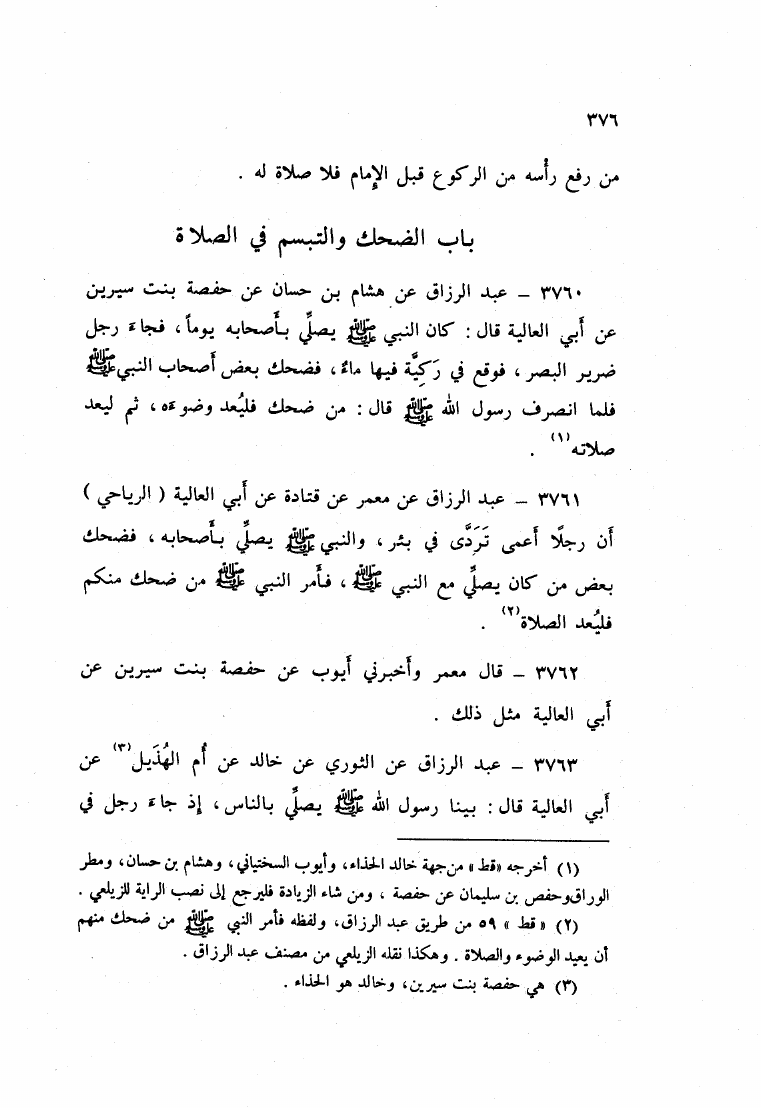 ٣٧٦
من رفع رأسه من الركوع قبل الإمام فلا صلاة له .
باب الضحك والتبسم في الصلاة
٣٧٦٠ – عبد الرزاق عن هشام بن حسان عن حفصة بنت سيرين
عن أبي العالية قال : كان النبي ﷺ يصلِّي بأصحابه يوماً ، فجاءَ رجل
ضرير البصر ، فوقع في رَكِيَّة فيها ماءٌ ، فضحك بعض أصحاب النبي ﷺ
فلما انصرف رسول الله ﷺ قال : من ضحك فليُعد وضوءَه ، ثم ليعد
صلاته (١) .
٣٧٦١ – عبد الرزاق عن معمر عن قتادة عن أبي العالية ( الرياحي )
أن رجلًا أعمى تَرَدَّى في بئر ، والنبي ﷺ يصلِّي بأصحابه ، فضحك
بعض من كان يصلِّي مع النبي ﷺ ، فأمر النبي ﷺ من ضحك منكم
فليُعد الصلاة (٢) .
٣٧٦٢ – قال معمر وأخبرني أيوب عن حفصة بنت سيرين عن
أبي العالية مثل ذلك .
٣٧٦٣ – عبد الرزاق عن الثوري عن خالد عن أم الهُذَيل (٣) عن
أبي العالية قال : بينا رسول الله ﷺ يصلِّي بالناس ، إذ جاءَ رجل في
(١) أخرجه «قط» من جهة خالد الحذاء، وأيوب السختياني، وهشام بن حسان، ومطر
الوراق وحفص بن سليمان عن حفصة ، ومن شاء الزيادة فليرجع إلى نصب الراية للزيلعي .
(٢) « قط » ٥٩ من طريق عبد الرزاق، ولفظه فأمر النبي ﷺ من ضحك منهم
أن يعيد الوضوء والصلاة . وهكذا نقله الزيلعي من مصنف عبد الرزاق .
(٣) هي حفصة بنت سيرين، وخالد هو الحذاء .